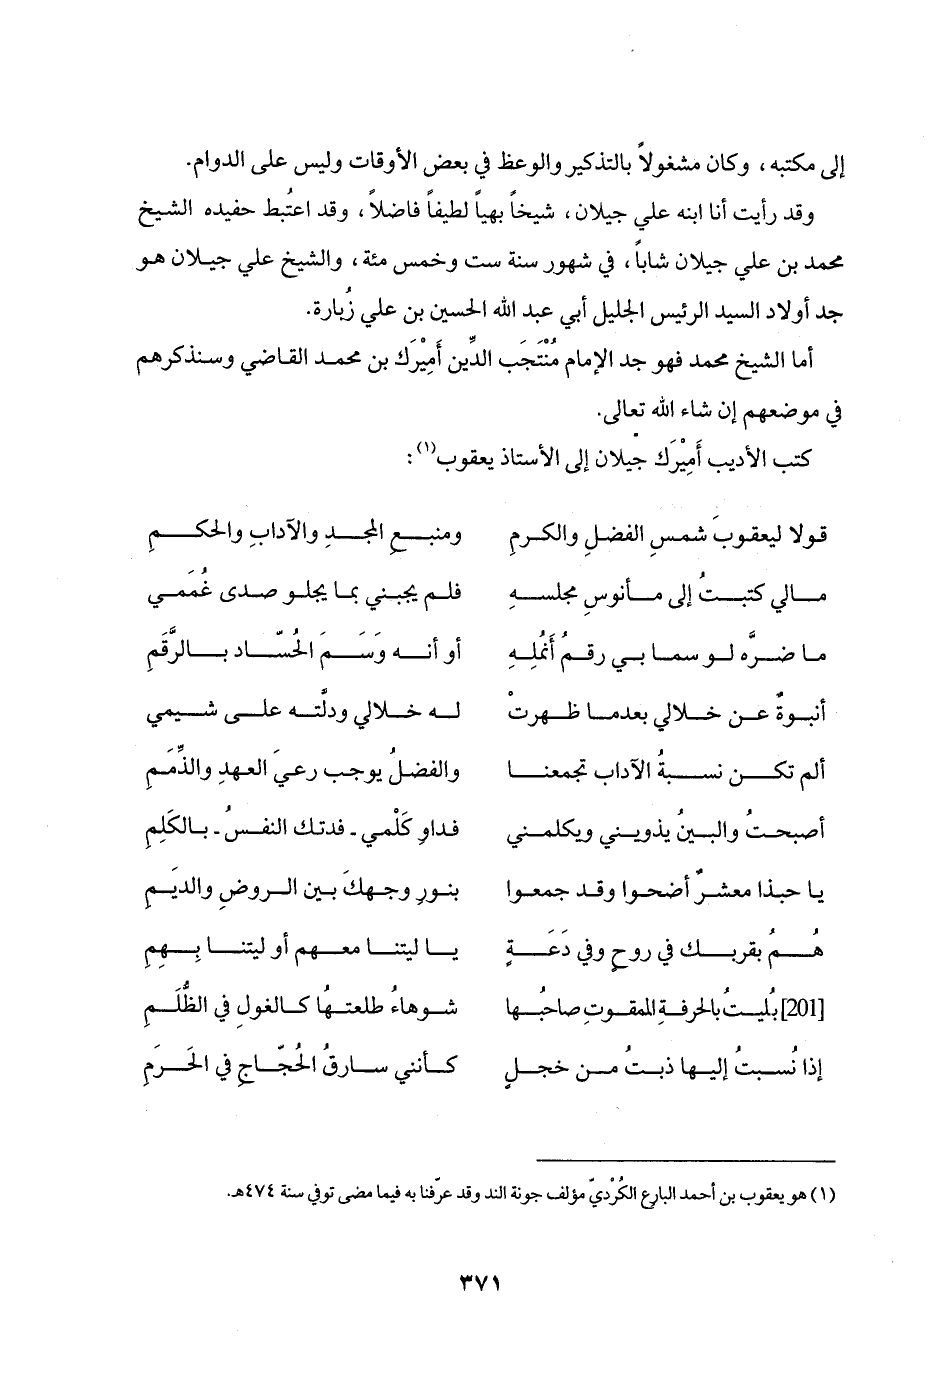 إلى مكتبه، وكان مشغولاً بالتذكير والوعظ في بعض الأوقات وليس على الدوام.
وقد رأيت أنا ابنه علي جيلان، شيخاً بهياً لطيفاً فاضلاً، وقد اعتُبط حفيده الشيخ
محمد بن علي جيلان شاباً، في شهور سنة ست وخمس مئة، والشيخ علي جيلان هو
جد أولاد السيد الرئيس الجليل أبي عبد الله الحسين بن علي زُبارة.
أما الشيخ محمد فهو جد الإمام مُنْتَجَب الدِّين أَمِيْرَك بن محمد القاضي وسنذكرهم
في موضعهم إن شاء الله تعالى.
كتب الأديب أَمِيْرَك جيلان إلى الأستاذ يعقوب(١):
قولا ليعقوبَ شمسِ الفضلِ والكرمِ ومنبعِ المجدِ والآدابِ والحكمِ
مالي كتبتُ إلى مأنوسِ مجلسهِ فلم يجبني بما يجلو صدى غُمَمي
ما ضرَّه لو سما بي رقمُ أُنمُلِهِ أو أنه وَسَمَ الحُسّاد بالرَّقَمِ
أنبوةٌ عن خلالي بعدما ظهرتْ له خلالي ودلَّته على شيمي
ألم تكن نسبةُ الآداب تجمعنا والفضلُ يوجب رعيَ العهدِ والذِّمَمِ
أصبحتُ والبينُ يذويني ويكلمني فداوِ كَلْمي ـ فدتك النفسُ ـ بالكَلِمِ
يا حبذا معشرٌ أضحوا وقد جمعوا بنورِ وجهكَ بين الروضِ والديَمِ
هُمُ بقربك في روحٍ وفي دَعَةٍ يا ليتنا معهم أو ليتنا بِهِمِ
[201] بُليتُ بالحرفةِ الممقوتِ صاحبُها شوهاءُ طلعتُها كالغولِ في الظُّلَمِ
إذا نُسبتُ إليها ذبتُ من خجلٍ كأنني سارقُ الحُجّاجِ في الحَرَمِ
(١) هو يعقوب بن أحمد البارع الكُرْديّ مؤلف جونة الند وقد عرّفنا به فيما مضى توفي سنة ٤٧٤هـ.
٣٧١